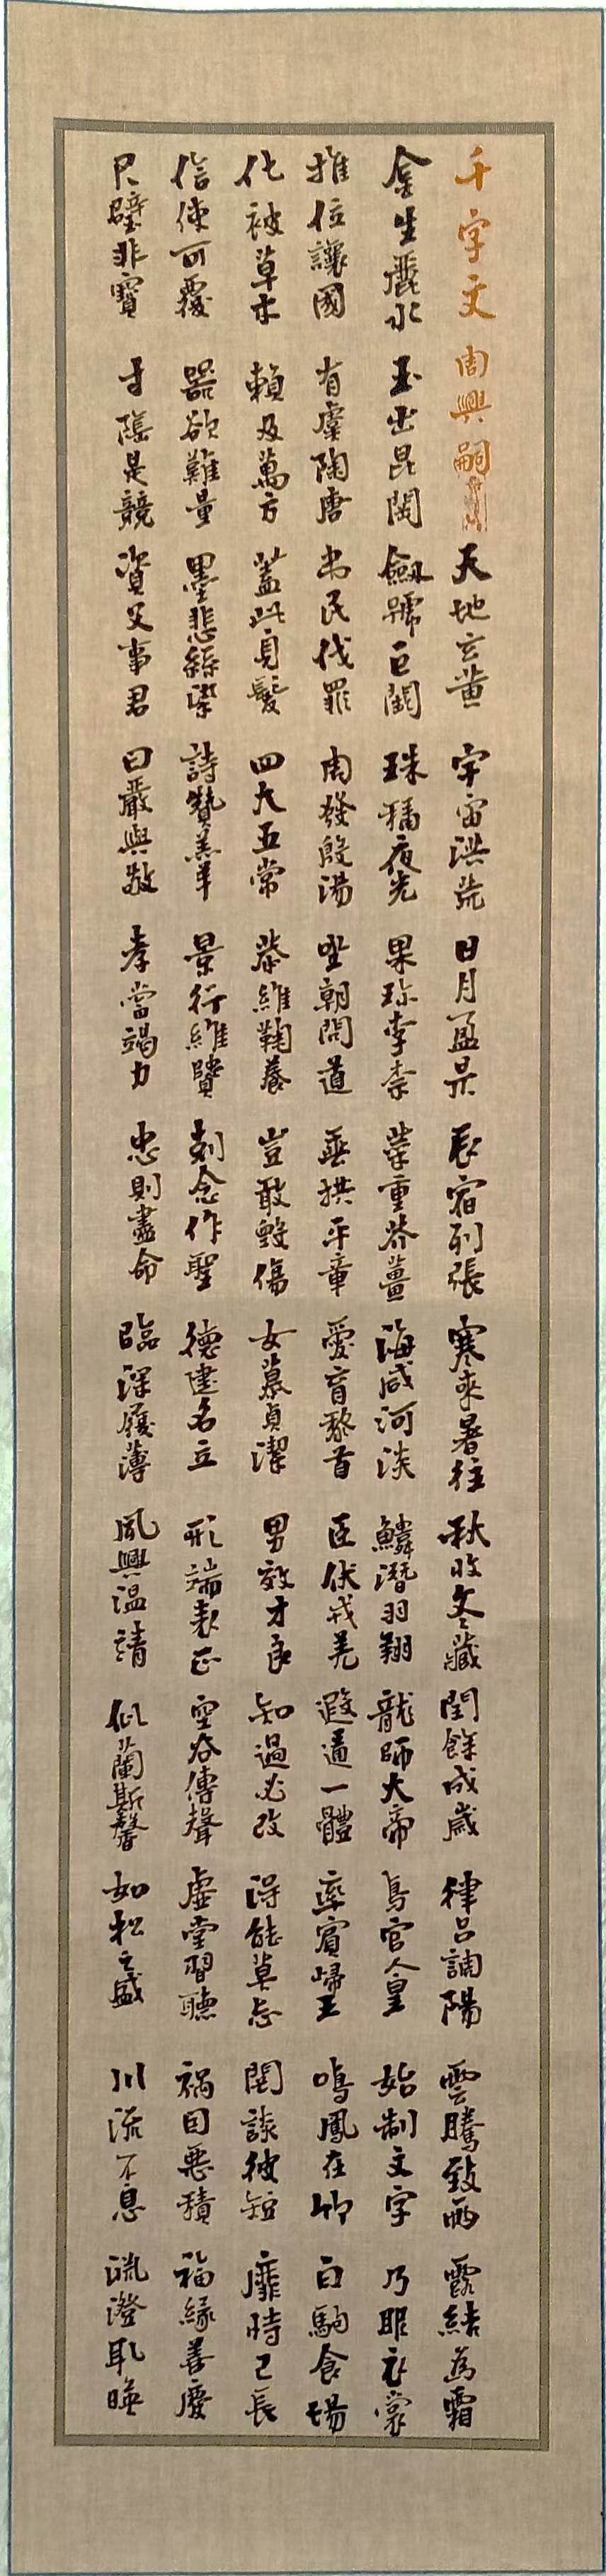 千字文 周興嗣 天地玄黃 宇宙洪荒 日月盈昃 辰宿列張 寒來暑往 秋收冬藏 閏餘成歲 律呂調陽 雲騰致雨 露結為霜
金生麗水 玉出昆岡 劍號巨闕 珠稱夜光 果珍李柰 菜重芥薑 海咸河淡 鱗潛羽翔 龍師火帝 鳥官人皇 始制文字 乃服衣裳
推位讓國 有虞陶唐 弔民伐罪 周發殷湯 坐朝問道 垂拱平章 愛育黎首 臣伏戎羌 遐邇一體 率賓歸王 鳴鳳在竹 白駒食場
化被草木 賴及萬方 蓋此身髮 四大五常 恭維鞠養 豈敢毀傷 女慕貞潔 男效才良 知過必改 得能莫忘 罔談彼短 靡恃己長
信使可覆 器欲難量 墨悲絲染 詩贊羔羊 景行維賢 剋念作聖 德建名立 形端表正 空谷傳聲 虛堂習聽 禍因惡積 福緣善慶
尺璧非寶 寸陰是競 資父事君 曰嚴與敬 孝當竭力 忠則盡命 臨深履薄 夙興溫凊 似蘭斯馨 如松之盛 川流不息 淵澄取映